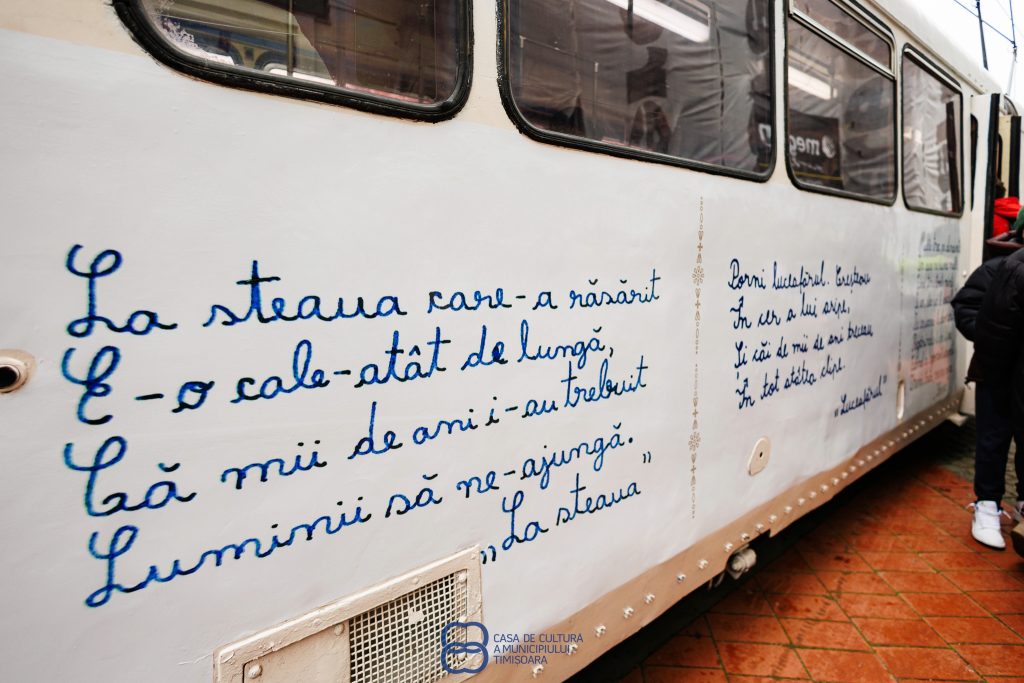 La steaua care-a răsărit
E-o cale-atât de lungă,
Că mii de ani i-au trebuit
Luminii să ne-ajungă.
„La steaua”
Porni luceafărul. Creșteau
În cer a lui aripe,
Și căi de mii de ani treceau
În tot atâtea clipe.
„Luceafărul”
meg
CASA DE CULTURĂ
A MUNICIPIULUI
TIMIȘOARA